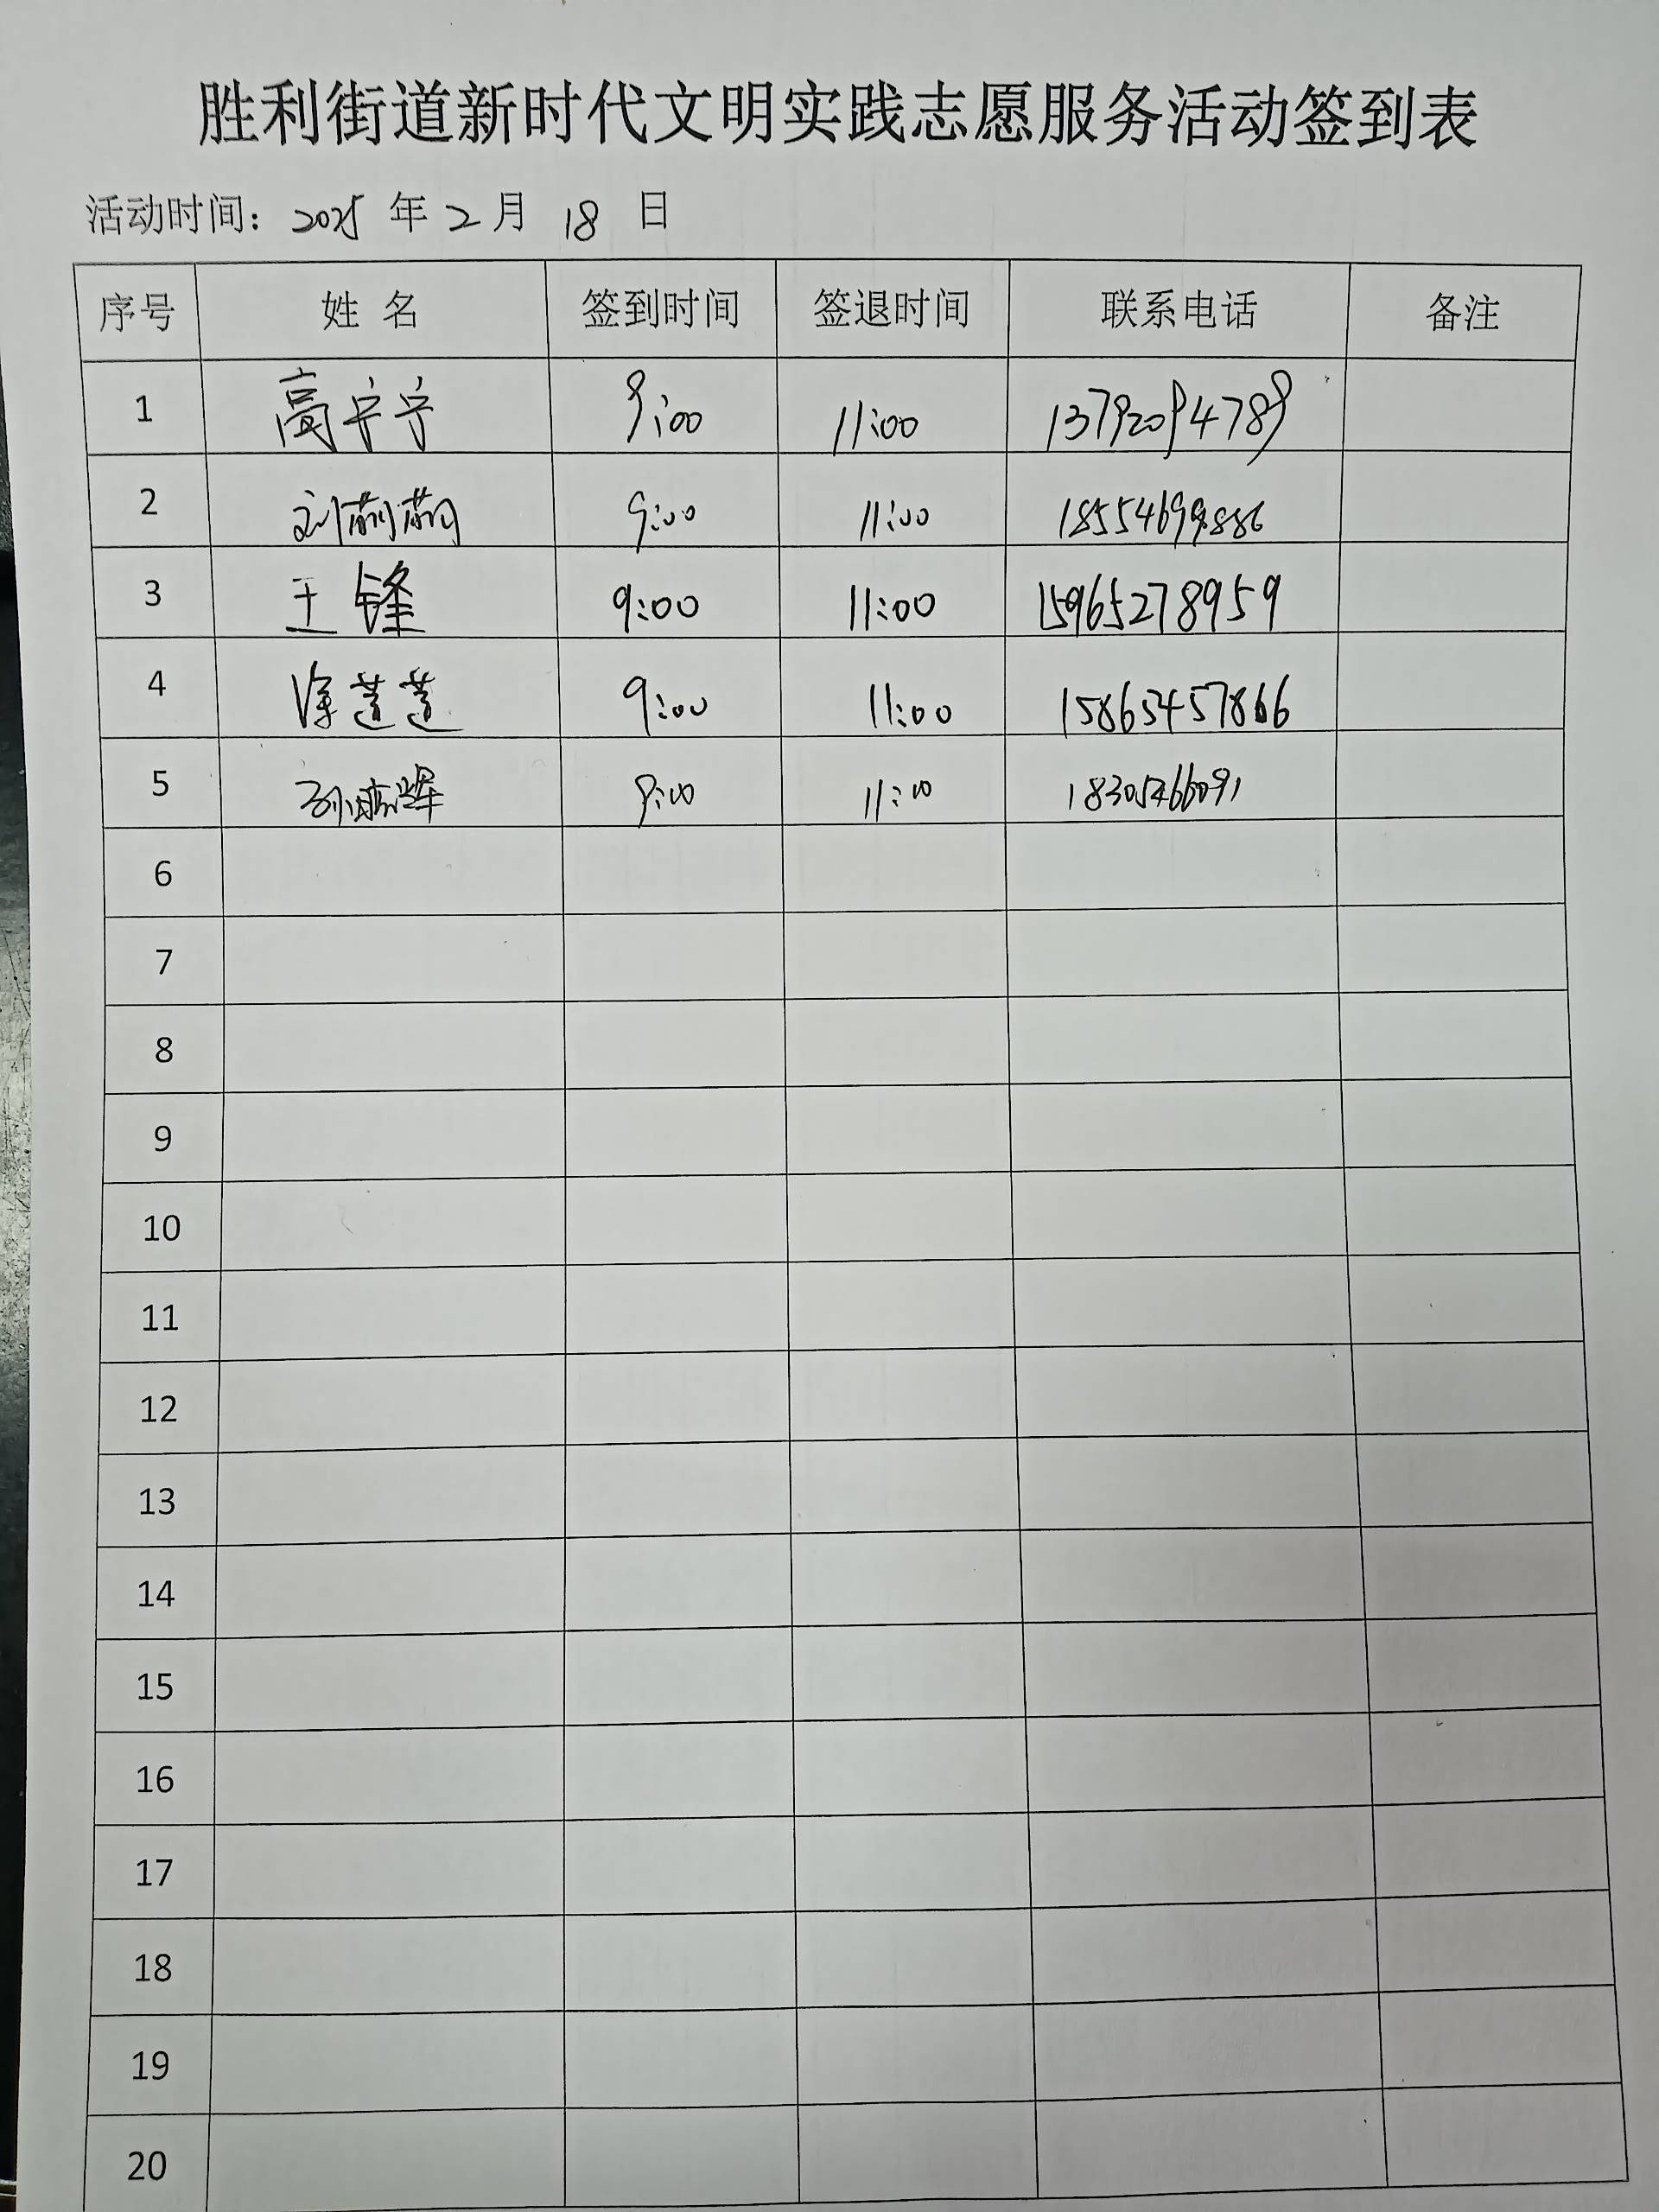 胜利街道新时代文明实践志愿服务活动签到表
活动时间: 2025 年 2 月 18 日
序号 姓 名 签到时间 签退时间 联系电话 备注
1 高宁宁 9:00 11:00 13792094789
2 刘 9:00 11:00 18554699886
3 王锋 9:00 11:00 15965278959
4 徐莲莲 9:00 11:00 15865457866
5 孙 9:00 11:00 18305466091
6
7
8
9
10
11
12
13
14
15
16
17
18
19
20